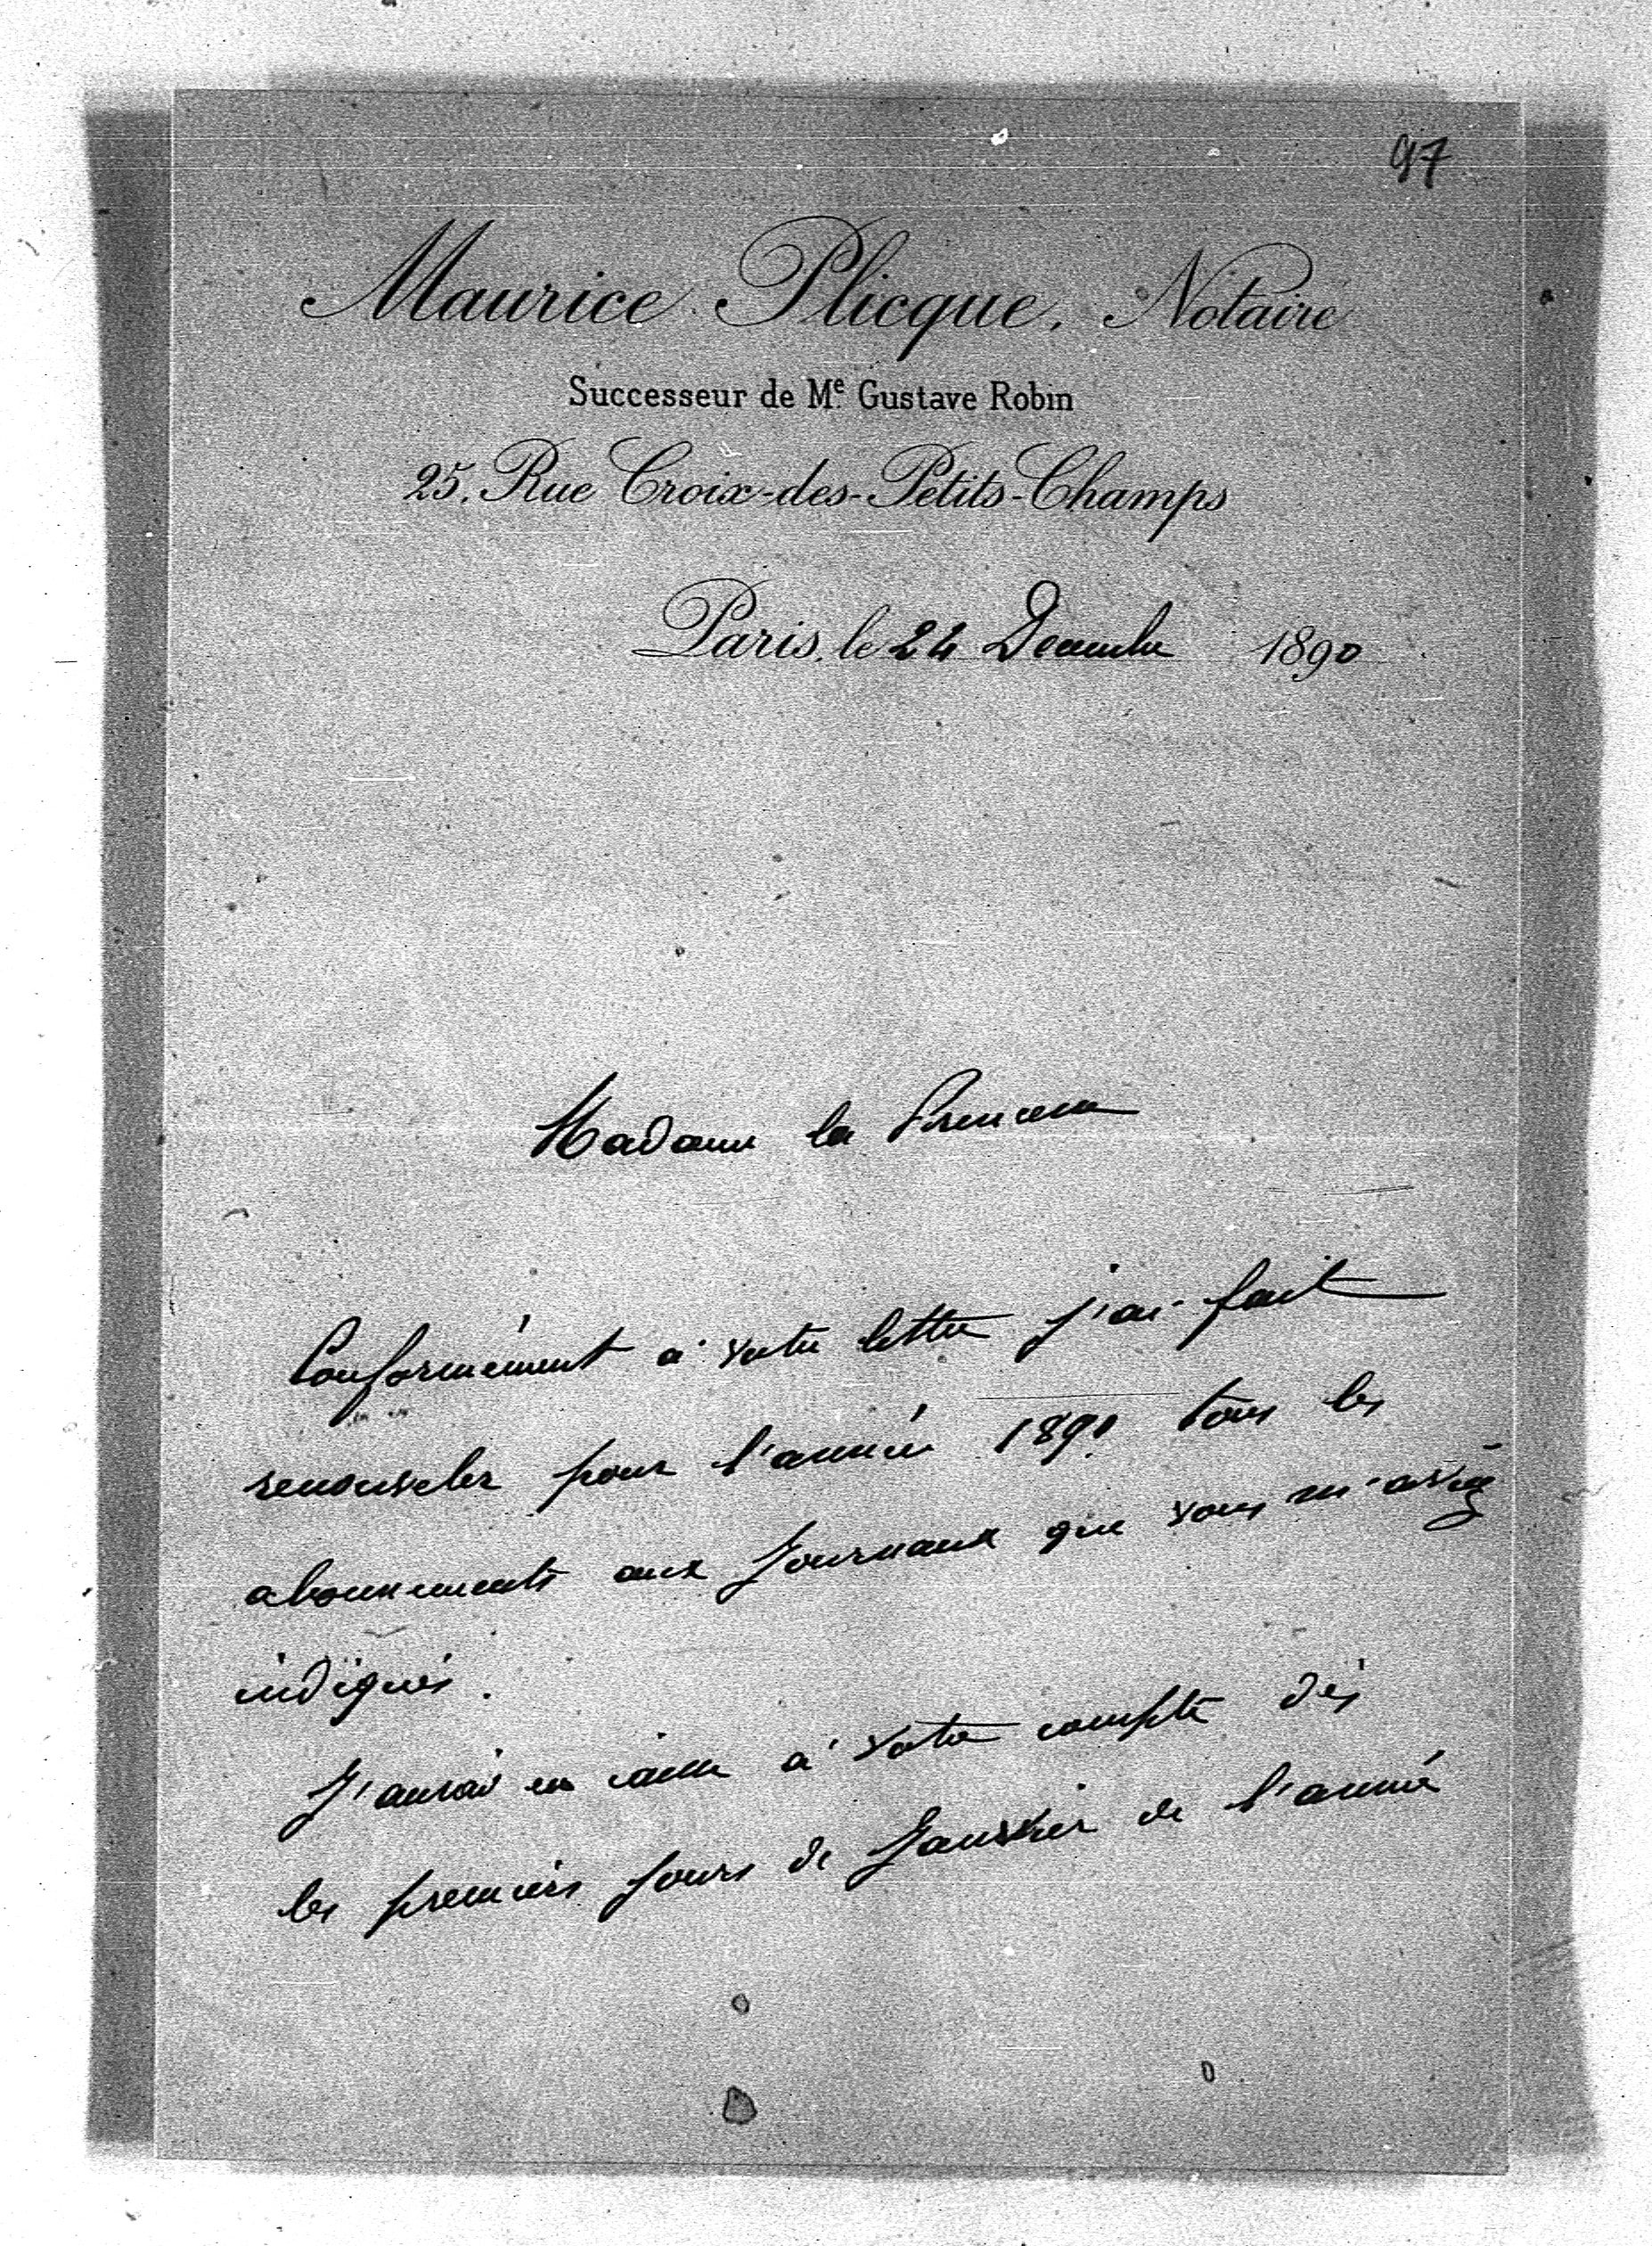 97
Maurice Plicque, Notaire
Successeur de Me Gustave Robin
25, Rue Croix-des-Petits-Champs
Paris, le 24 Decembre 1890
Madame la Princesse
Conformément à votre lettre j'ai fait
renouveler pour l'année 1891 tous les
abonnements aux Journaux que vous m'aviez
indiqués.
J'aurai en caisse à votre compte dès
les premiers jours de Janvier de l'année